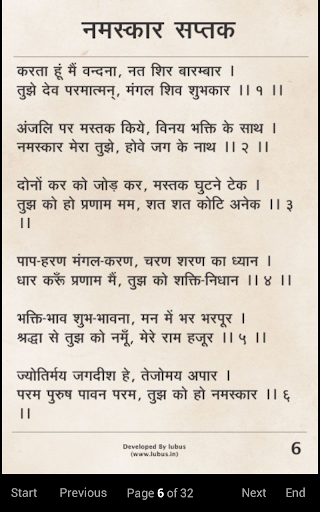 नमस्कार सप्तक
करता हूं मैं वन्दना, नत शिर बारम्बार ।
तुझे देव परमात्मन्, मंगल शिव शुभकार ।। १ ।।
अंजलि पर मस्तक किये, विनय भक्ति के साथ ।
नमस्कार मेरा तुझे, होवे जग के नाथ ।। २ ।।
दोनों कर को जोड़ कर, मस्तक घुटने टेक ।
तुझ को हो प्रणाम मम, शत शत कोटि अनेक ।। ३
।।
पाप-हरण मंगल-करण, चरण शरण का ध्यान ।
धार करूँ प्रणाम मैं, तुझ को शक्ति-निधान ।। ४ ।।
भक्ति-भाव शुभ-भावना, मन में भर भरपूर ।
श्रद्धा से तुझ को नमूँ, मेरे राम हजूर ।। ५ ।।
ज्योतिर्मय जगदीश हे, तेजोमय अपार ।
परम पुरुष पावन परम, तुझ को हो नमस्कार ।। ६
।।
Developed By lubus
(www.lubus.in)
6
Start Previous Page 6 of 32 Next End